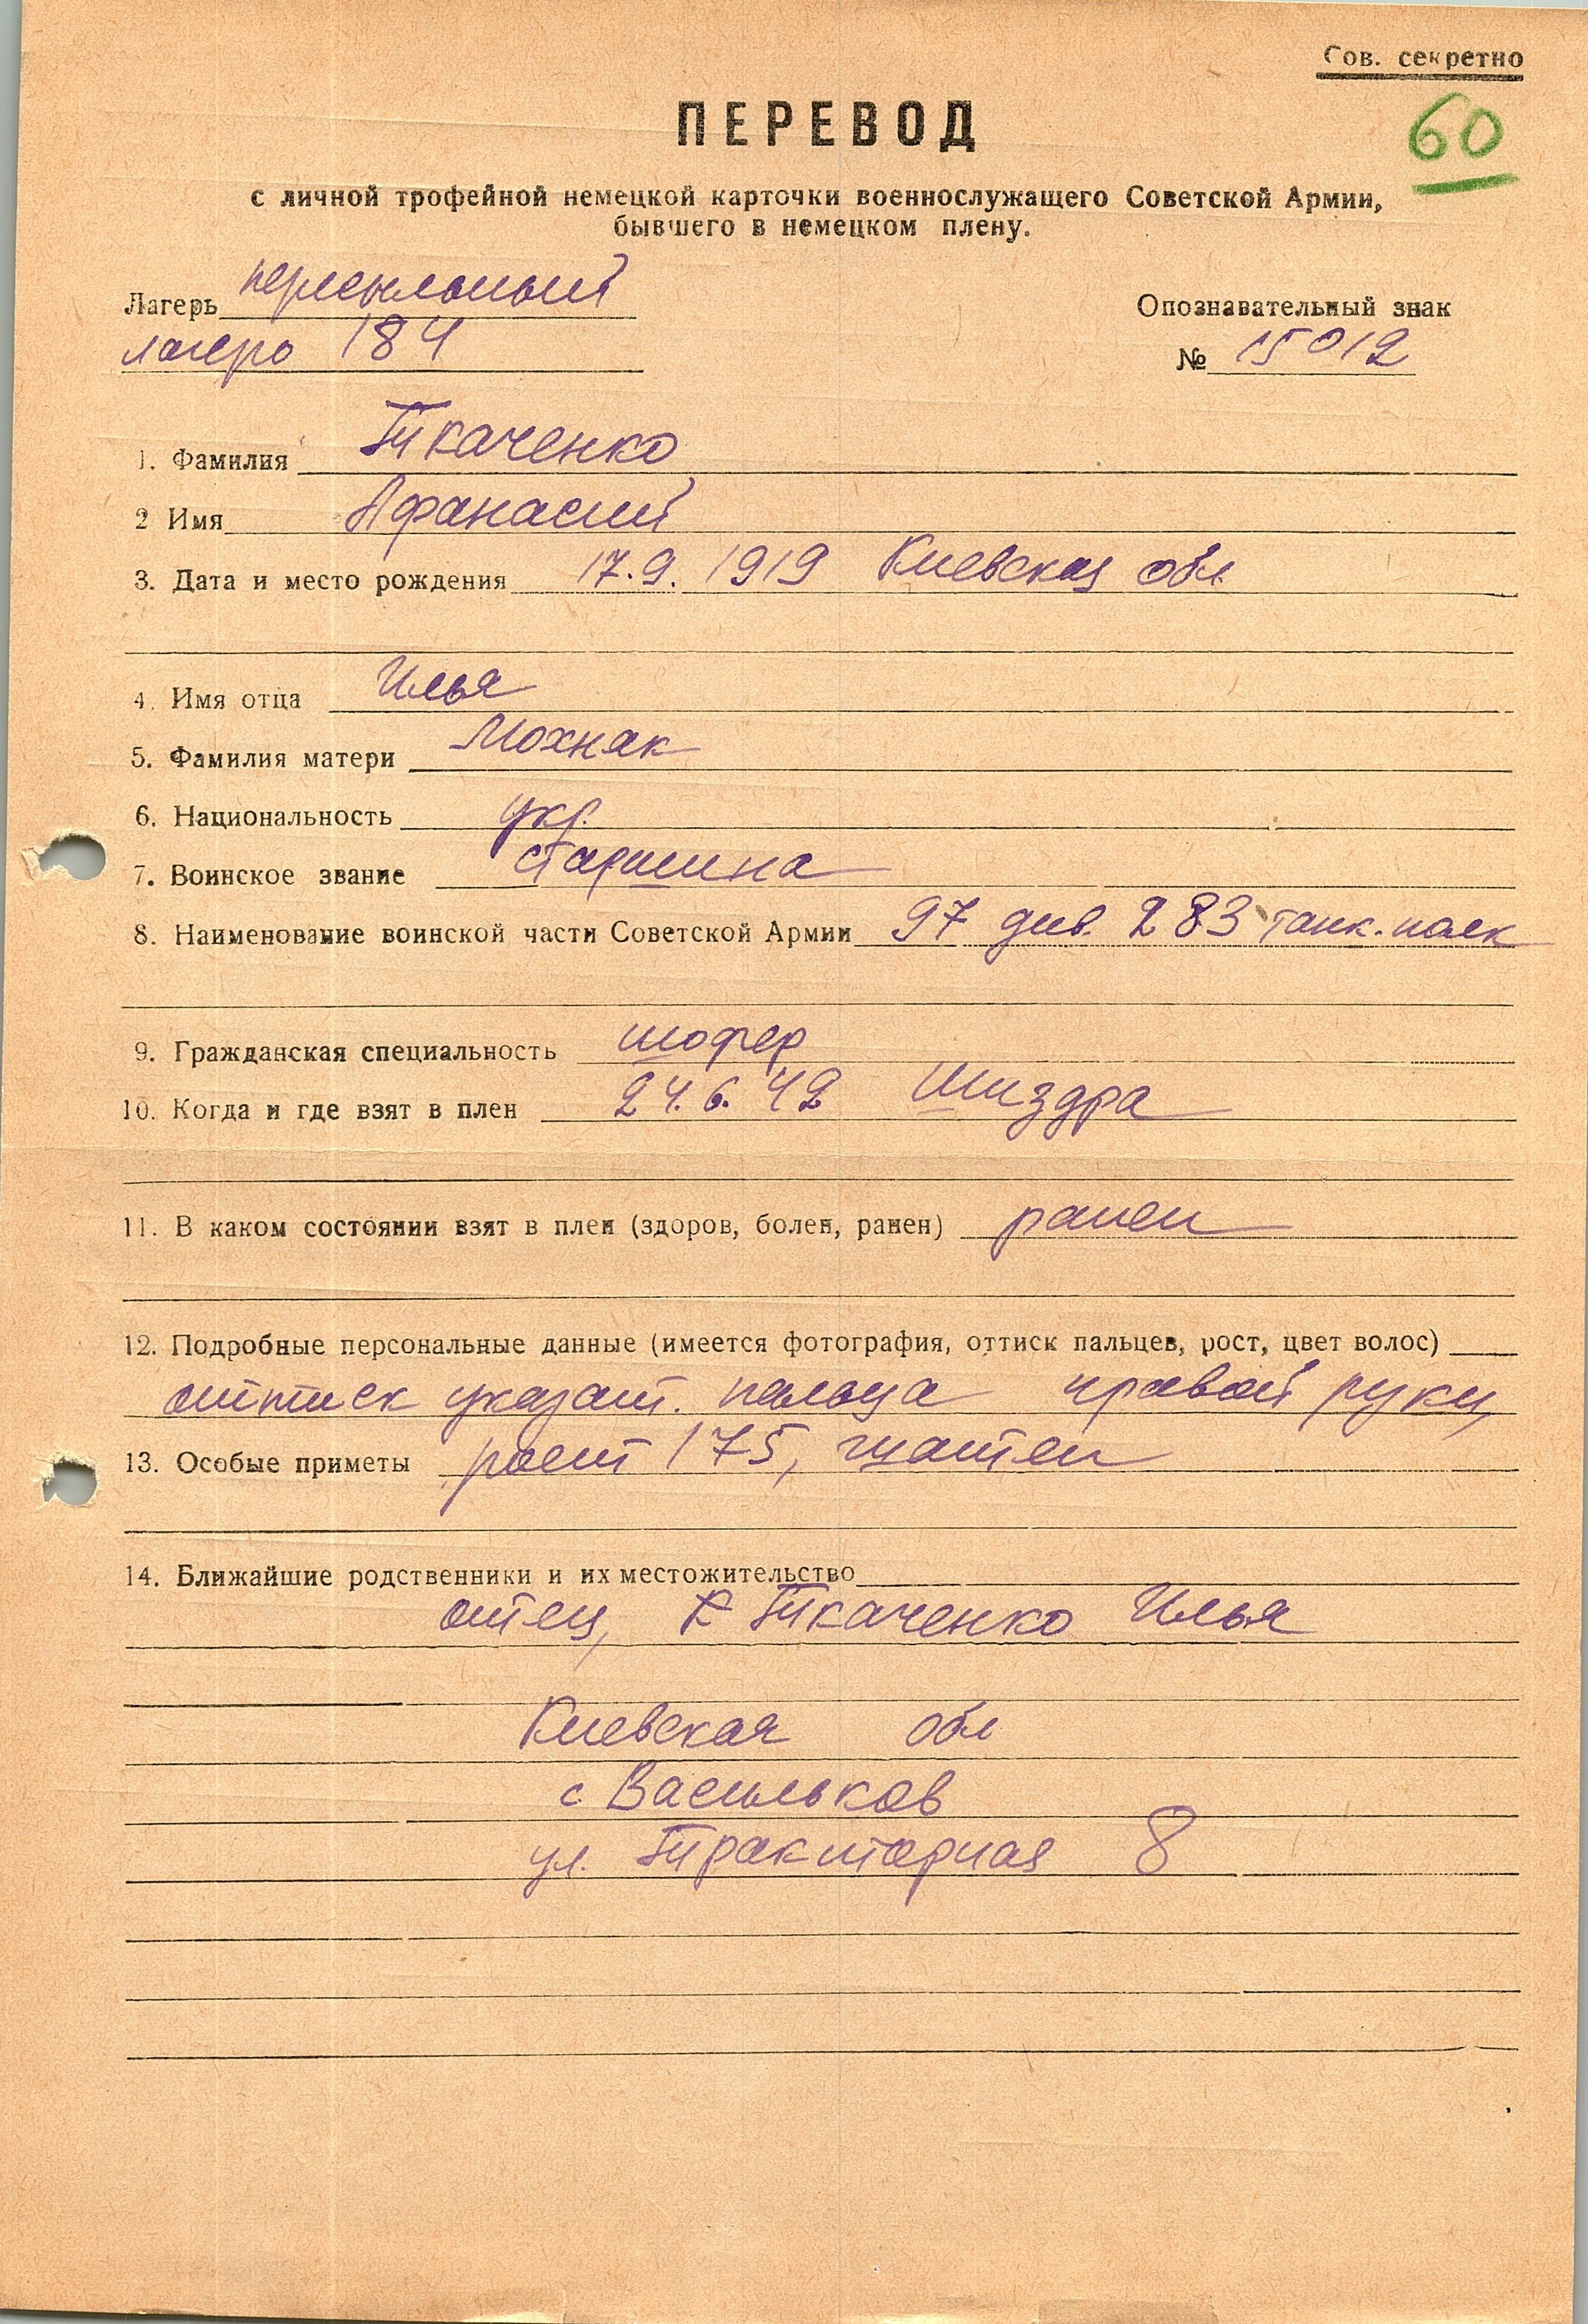 Сов. секретно
60
ПЕРЕВОД
с личной трофейной немецкой карточки военнослужащего Советской Армии,
бывшего в немецком плену.
Лагерь пересыльный
лагерь 184
Опознавательный знак
№ 15012
1. Фамилия Ткаченко
2 Имя Афанасий
3. Дата и место рождения 17.9.1919 Киевская обл
4. Имя отца Илья
5. Фамилия матери Мохняк
6. Национальность укр.
7. Воинское звание старшина
8. Наименование воинской части Советской Армии 97 див. 283 танк. полк
9. Гражданская специальность шофер
10. Когда и где взят в плен 24.6.42 Шиздра
11. В каком состоянии взят в плен (здоров, болен, ранен) ранен
12. Подробные персональные данные (имеется фотография, оттиск пальцев, рост, цвет волос)
оттиск указат. пальца правой руки,
13. Особые приметы рост 175, шатен
14. Ближайшие родственники и их местожительство
отец, Ткаченко Илья
Киевская обл
с. Васильков
ул. Тракторная 8